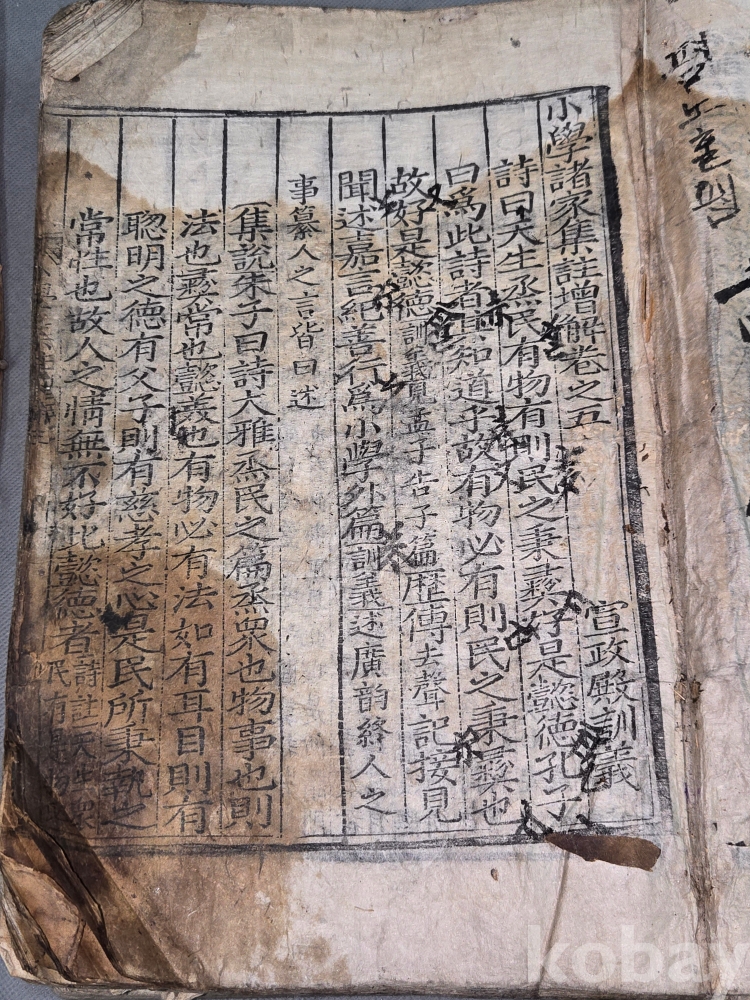 小學諸家集註增解卷之五
宣政殿訓義
詩曰天生烝民有物有則民之秉彛好是懿德孔子
曰爲此詩者其知道乎故有物必有則民之秉彛也
故好是懿德訓義見孟子告子篇歷傳去聲記接見
聞述嘉言紀善行爲小學外篇訓義述廣韵終人之
事纂人之言皆曰述
集說朱子曰詩大雅烝民之篇烝衆也物事也則
法也彛常也懿美也有物必有法如有耳目則有
聰明之德有父子則有慈孝之心是民所秉執之
常性也故人之情無不好此懿德者詩註天生衆
民有是物
kobay